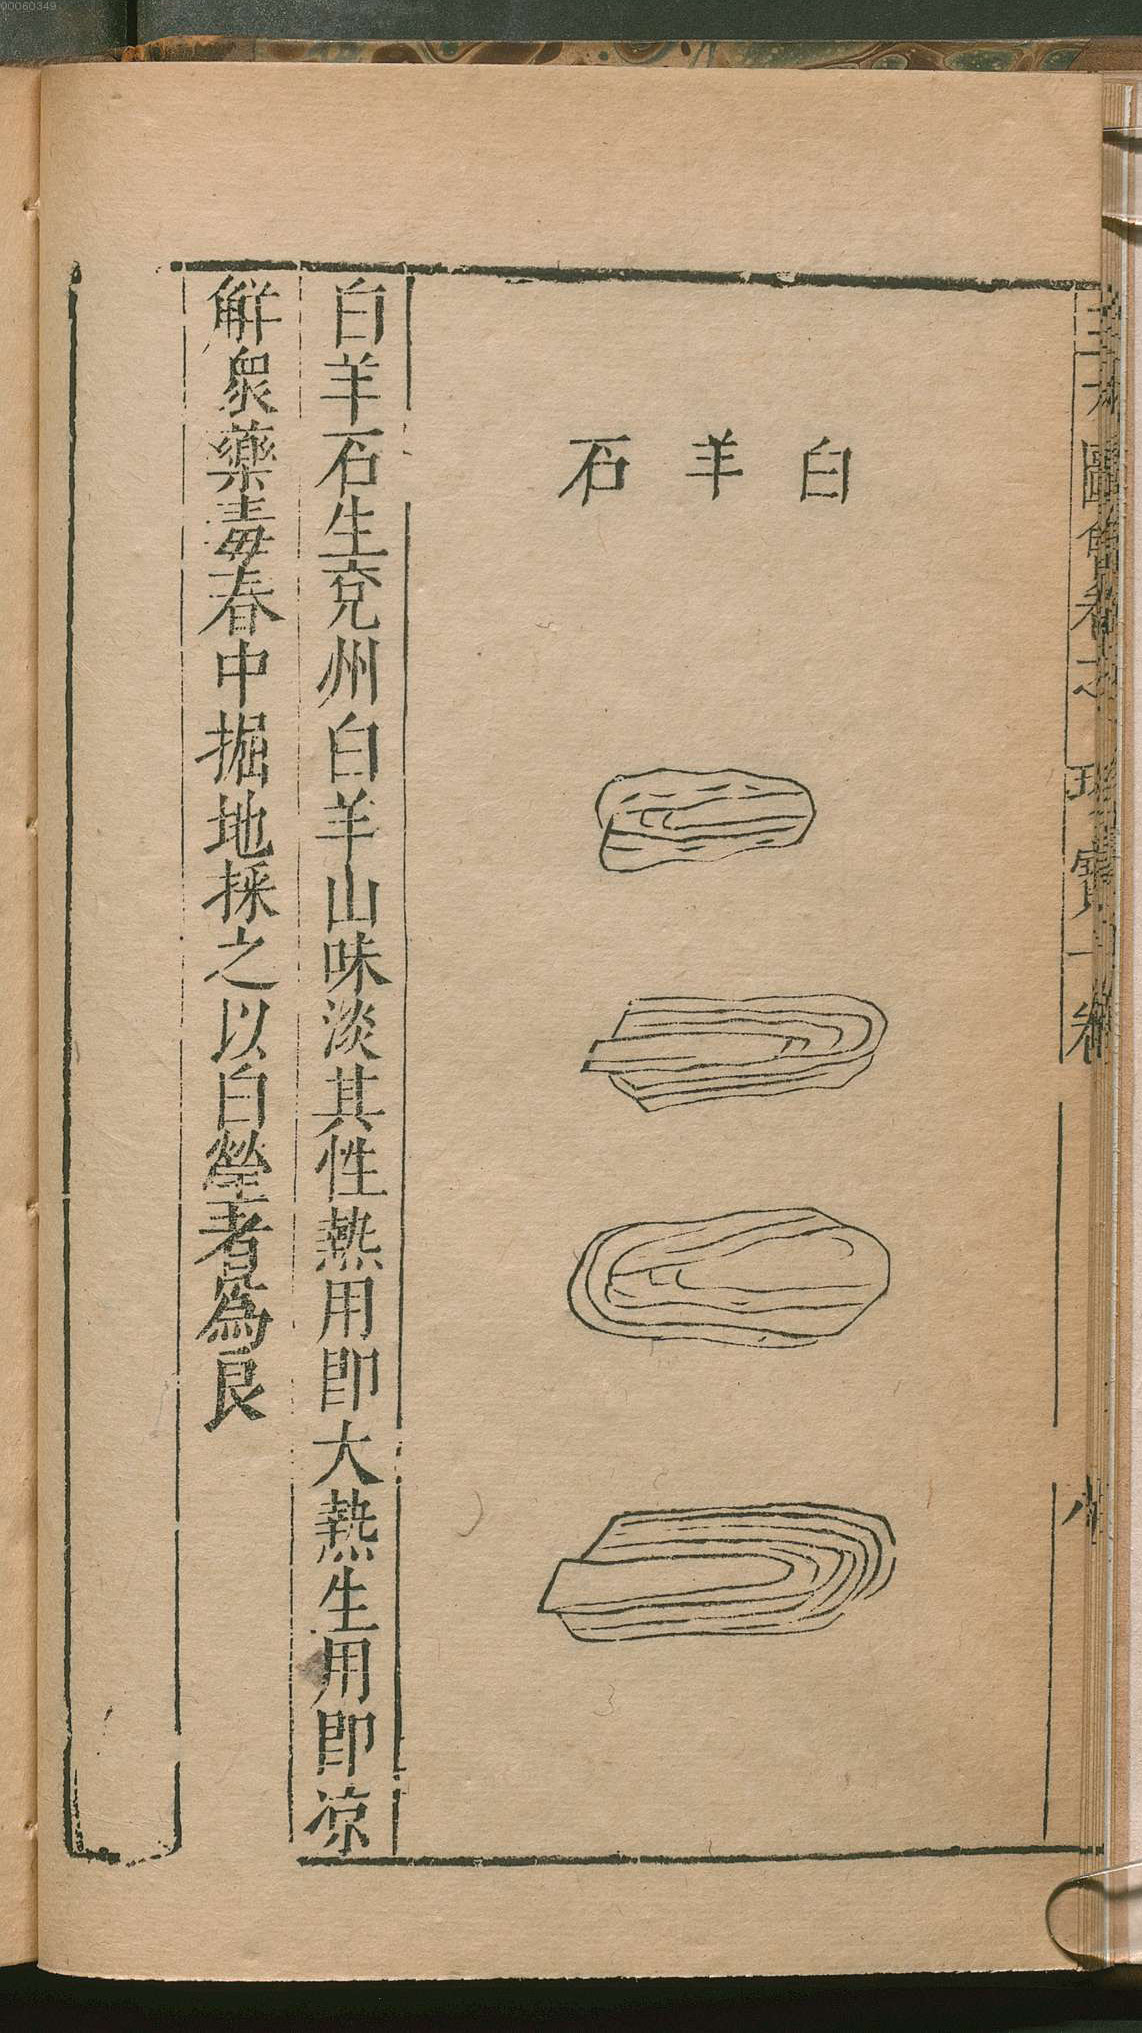 三才圖會卷之 珍寶一卷
白羊石
白羊石生兗州白羊山味淡其性熱用即大熱生用即凉
解衆藥毒春中掘地採之以白瑩者為良
00060349